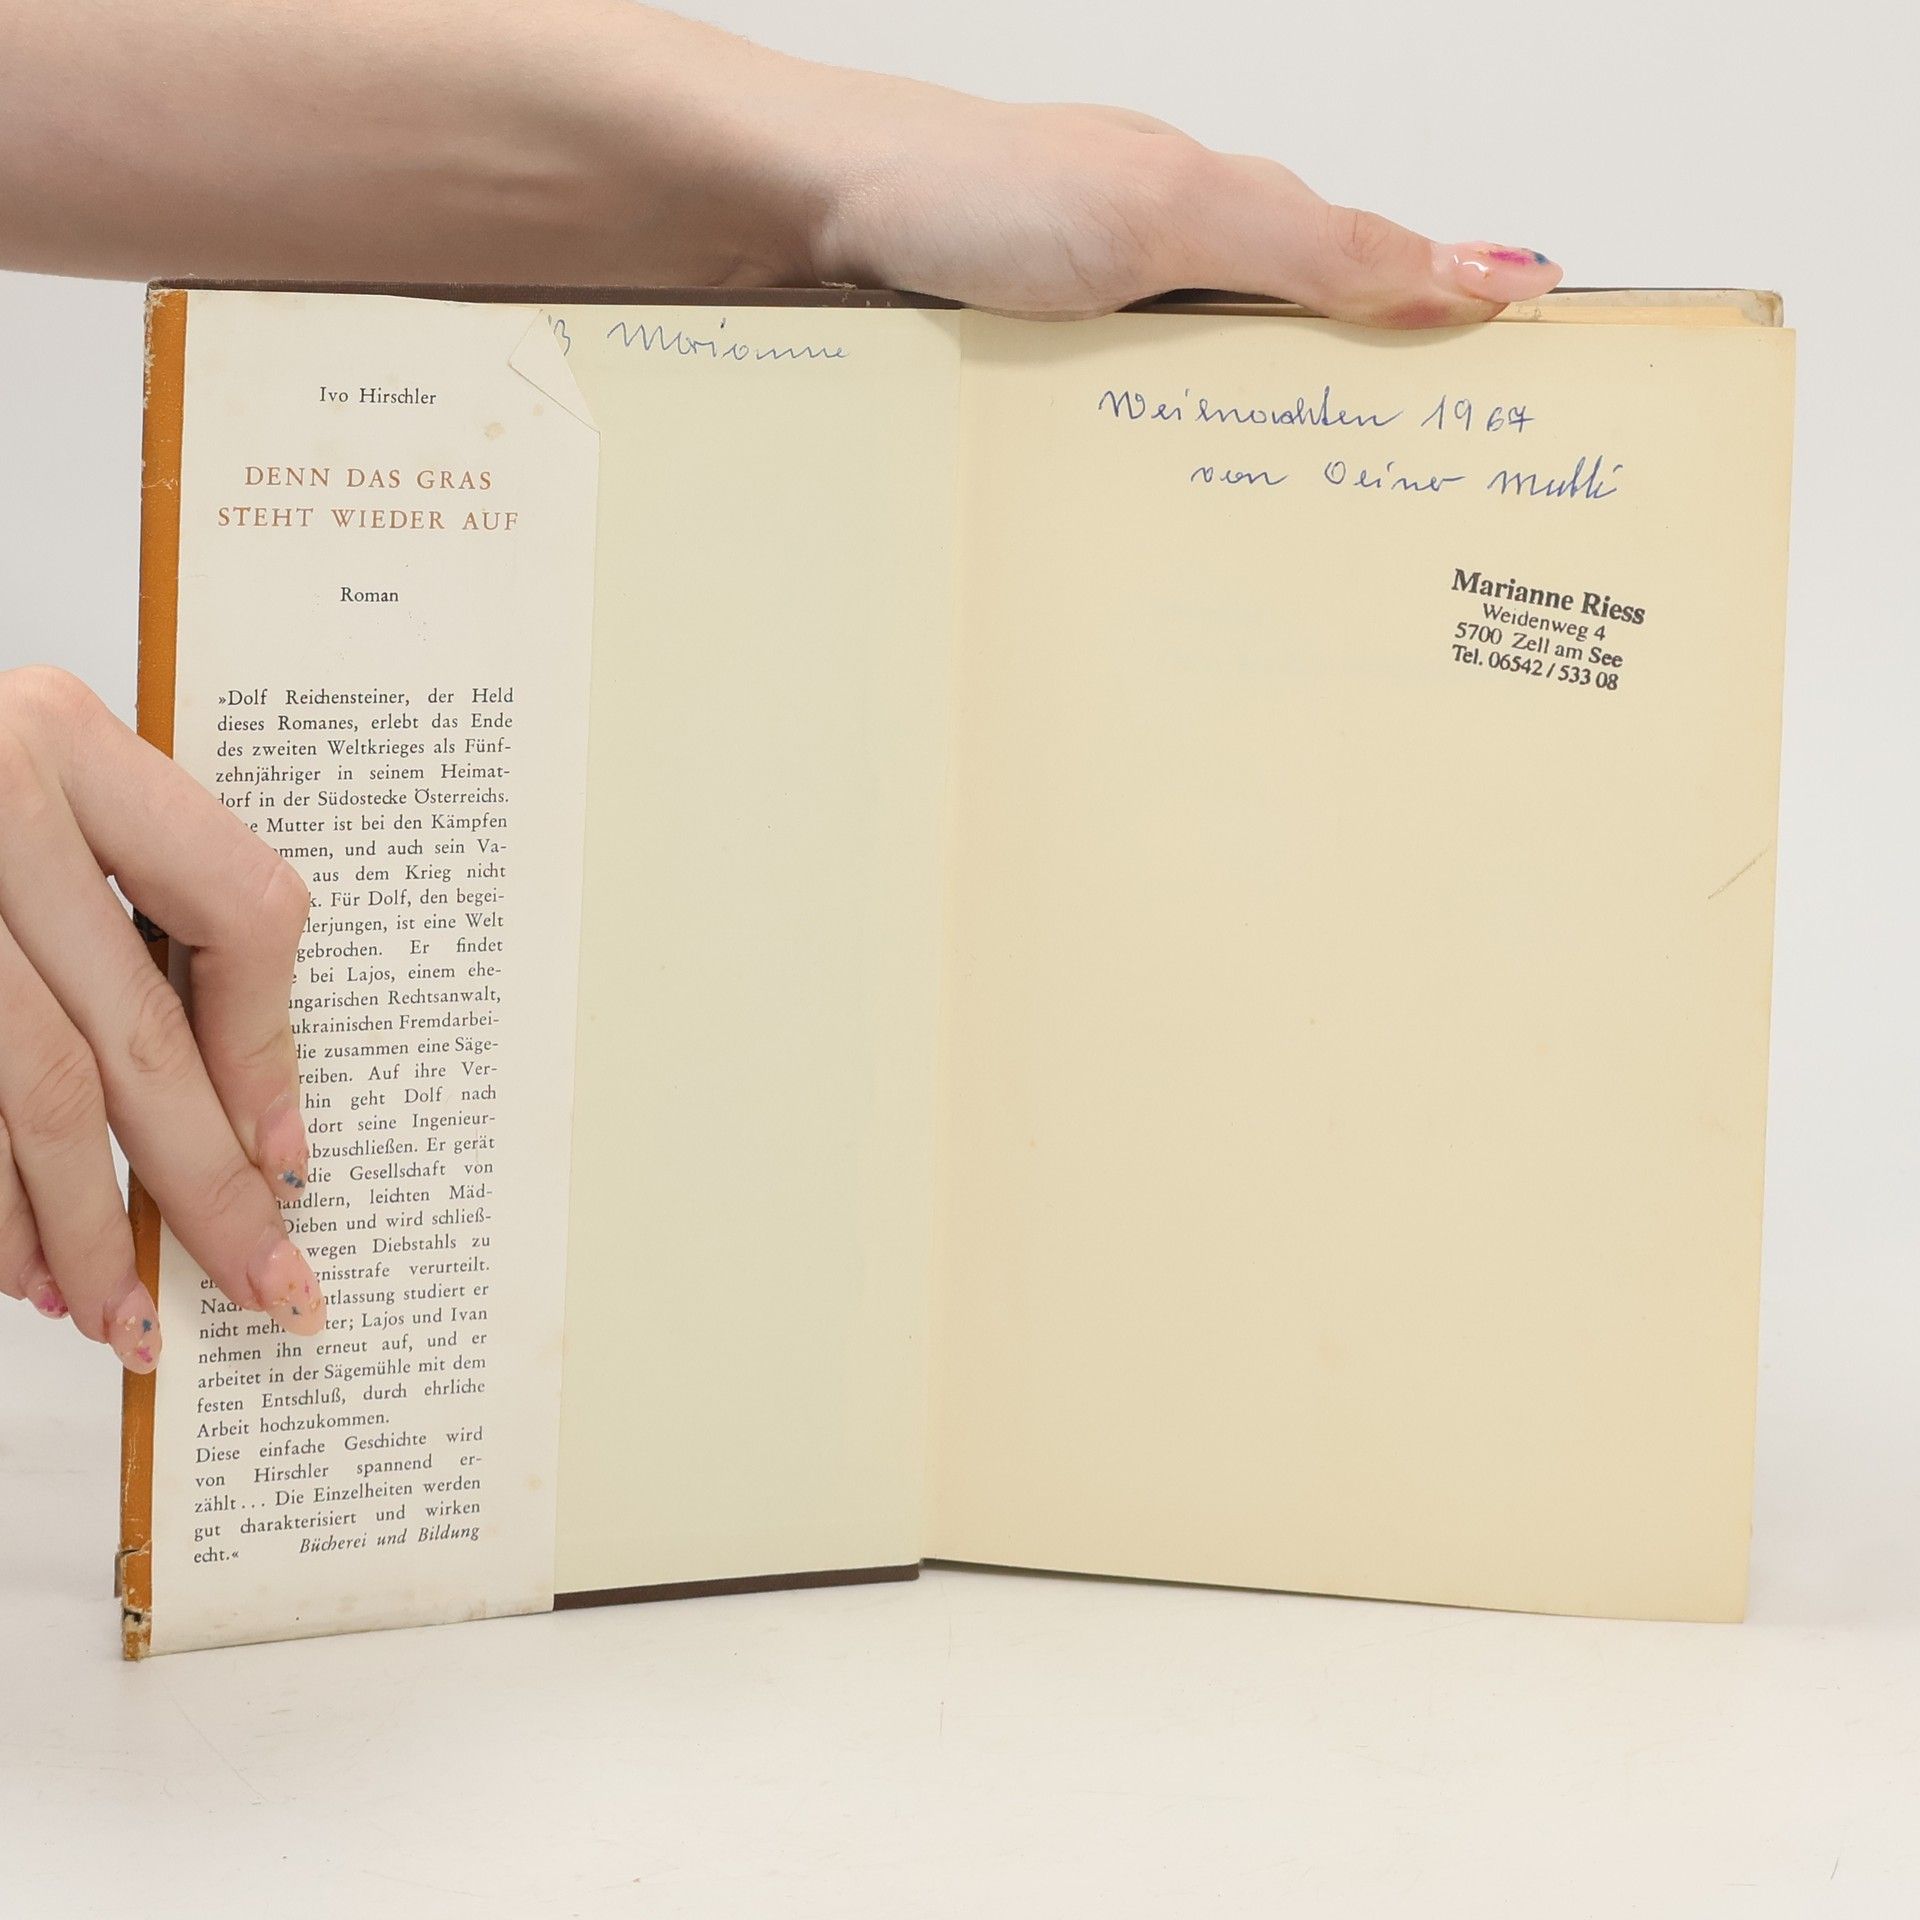 Ivo Hirschler
DENN DAS GRAS
STEHT WIEDER AUF
Roman
»Dolf Reichensteiner, der Held
dieses Romanes, erlebt das Ende
des zweiten Weltkrieges als Fünf-
zehnjähriger in seinem Heimat-
dorf in der Südostecke Österreichs.
Mutter ist bei den Kämpfen
und auch sein Va-
aus dem Krieg nicht
Für Dolf, den begei-
ist eine Welt
Er findet
bei Lajos, einem ehe-
ungarischen Rechtsanwalt,
ukrainischen Fremdarbei-
die zusammen eine Säge-
Auf ihre Ver-
hin geht Dolf nach
dort seine Ingenieur-
abzuschließen. Er gerät
die Gesellschaft von
leichten Mäd-
Dieben und wird schließ-
wegen Diebstahls zu
verurteilt.
studiert er
nicht Lajos und Ivan
nehmen ihn erneut auf, und er
arbeitet in der Sägemühle mit dem
festen Entschluß, durch ehrliche
Arbeit hochzukommen.
Diese einfache Geschichte wird
von Hirschler spannend er-
zählt... Die Einzelheiten werden
gut charakterisiert und wirken
echt.« Bücherei und Bildung
ß Marianne
Weihnachten 1967
von Deiner Mutti
Marianne Riess
Weidenweg 4
5700 Zell am See
Tel. 06542 / 533 08